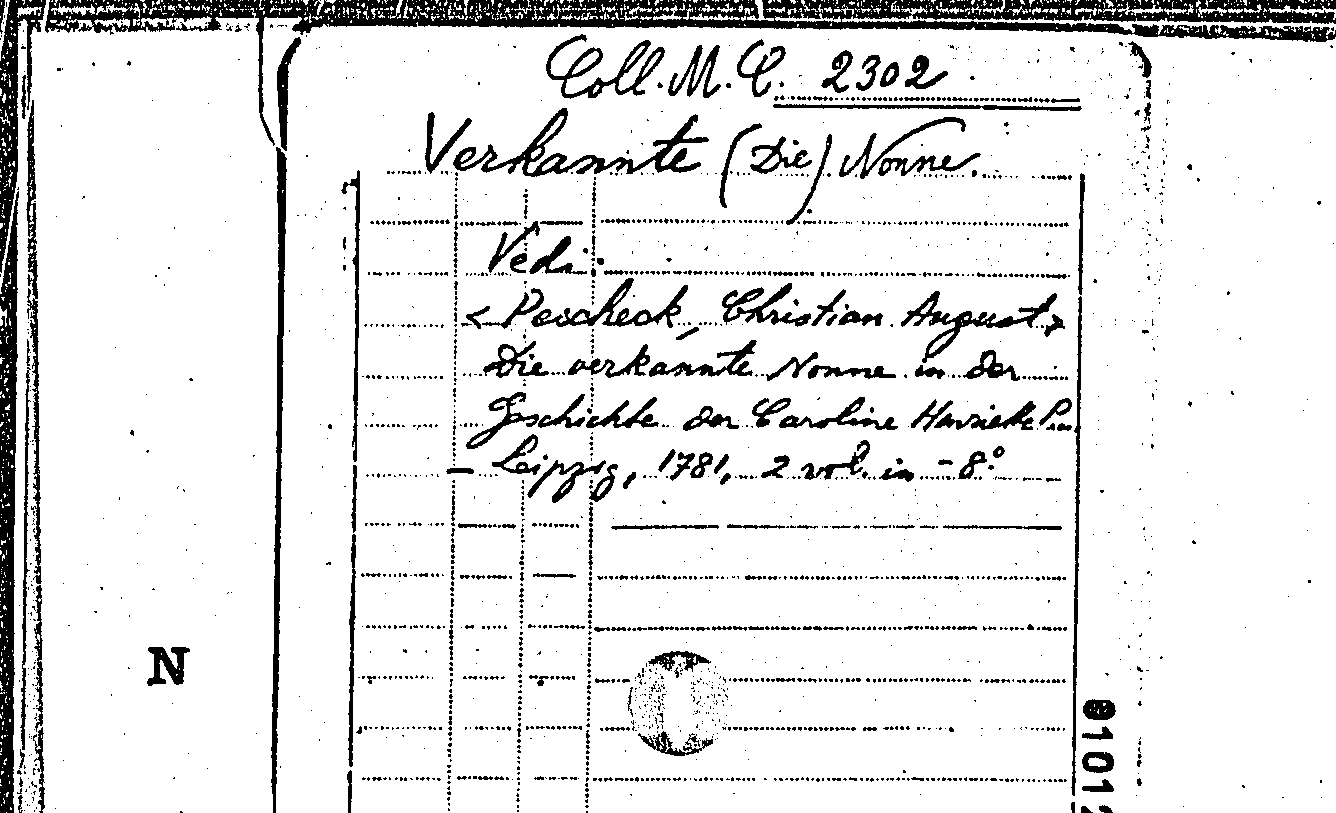 Coll. M. C. 2302
Verkannte (Die) Nonne.
Vedi:
< Pescheck, Christian August >
Die verkannte Nonne in der
Geschichte der Caroline Henriette
– Leipzig, 1781, 2 vol. in -8°
N